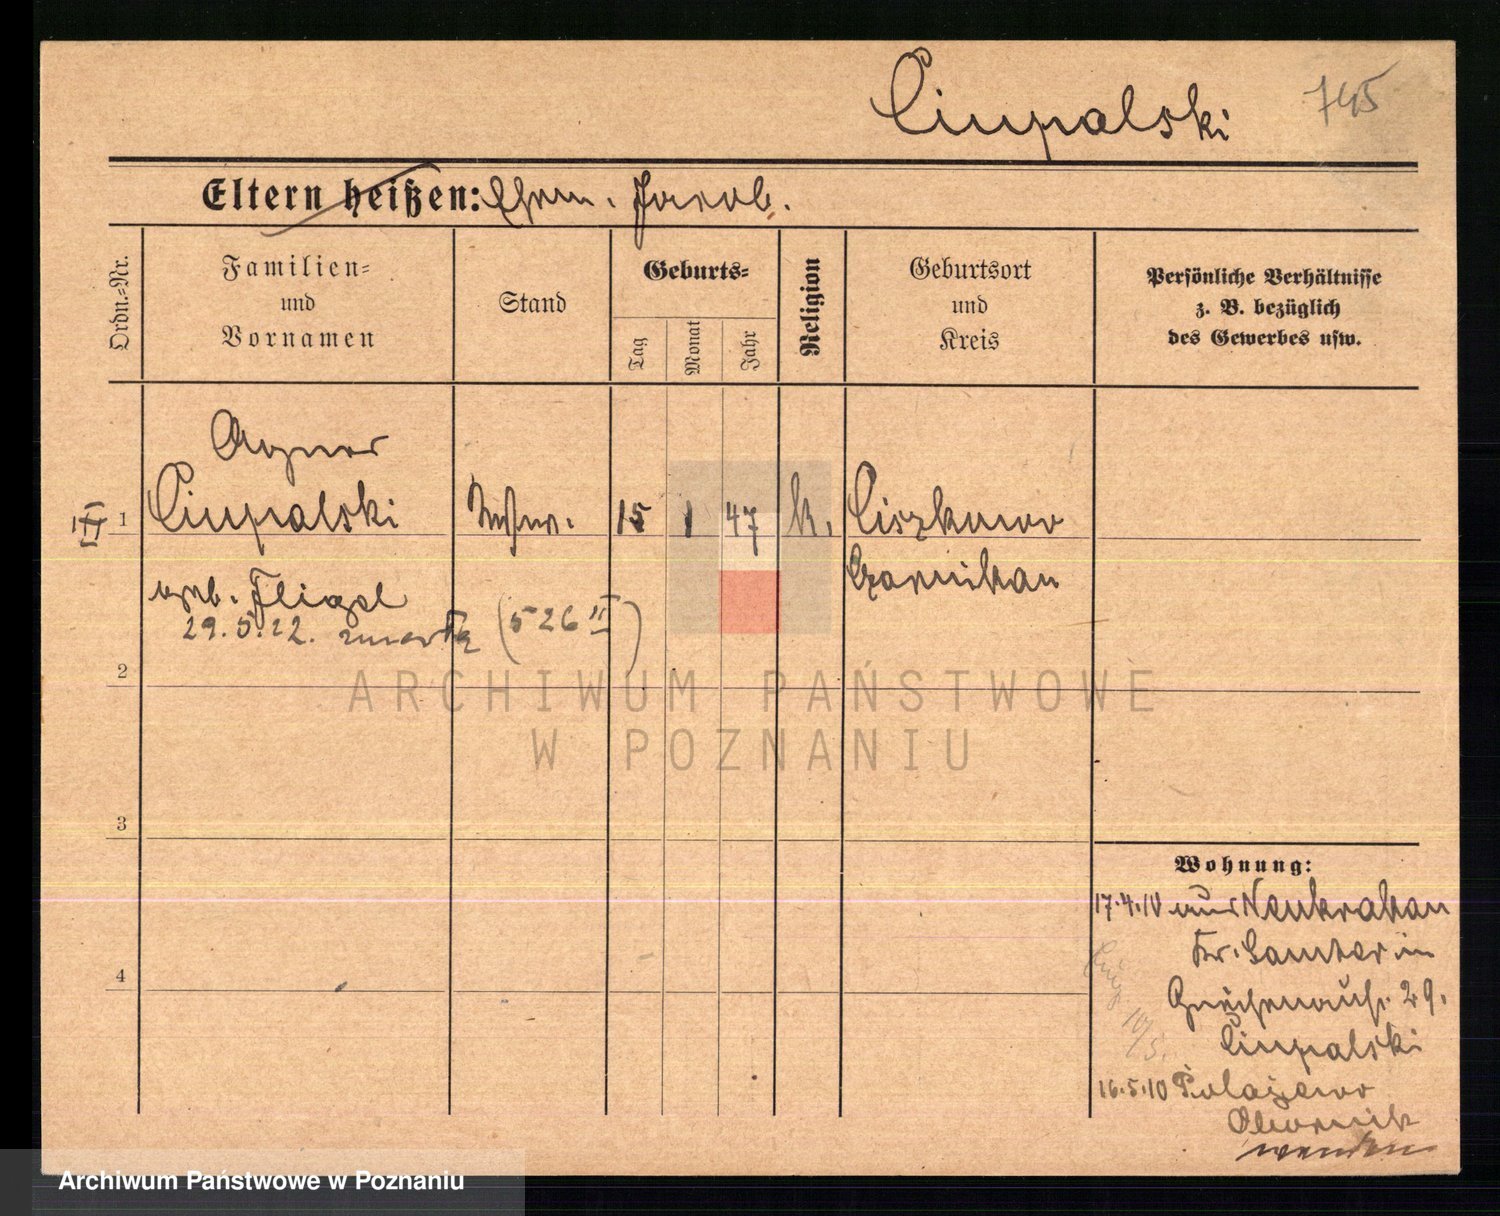 Ciupalski 745
Eltern heißen: Ehem. Jacob.
Ordn.-Nr.
Familien-
und
Vornamen
Stand
Geburts-
Tag
Monat
Jahr
Religion
Geburtsort
und
Kreis
Persönliche Verhältnisse
z. B. bezüglich
des Gewerbes usw.
Agnes
1 Ciupalski 15 1 47 k. Ciszkowo
Czarnikau
geb. Fligel
29.5.22. zmarła (526 II)
2
ARCHIWUM PAŃSTWOWE
W POZNANIU
3
Wohnung:
17.4.10 aus Neukrakau
Kr. Samter in
29.
4
Ciupalski
10/5.
16.5.10 Polajewo
Obornik
wenden
Archiwum Państwowe w Poznaniu